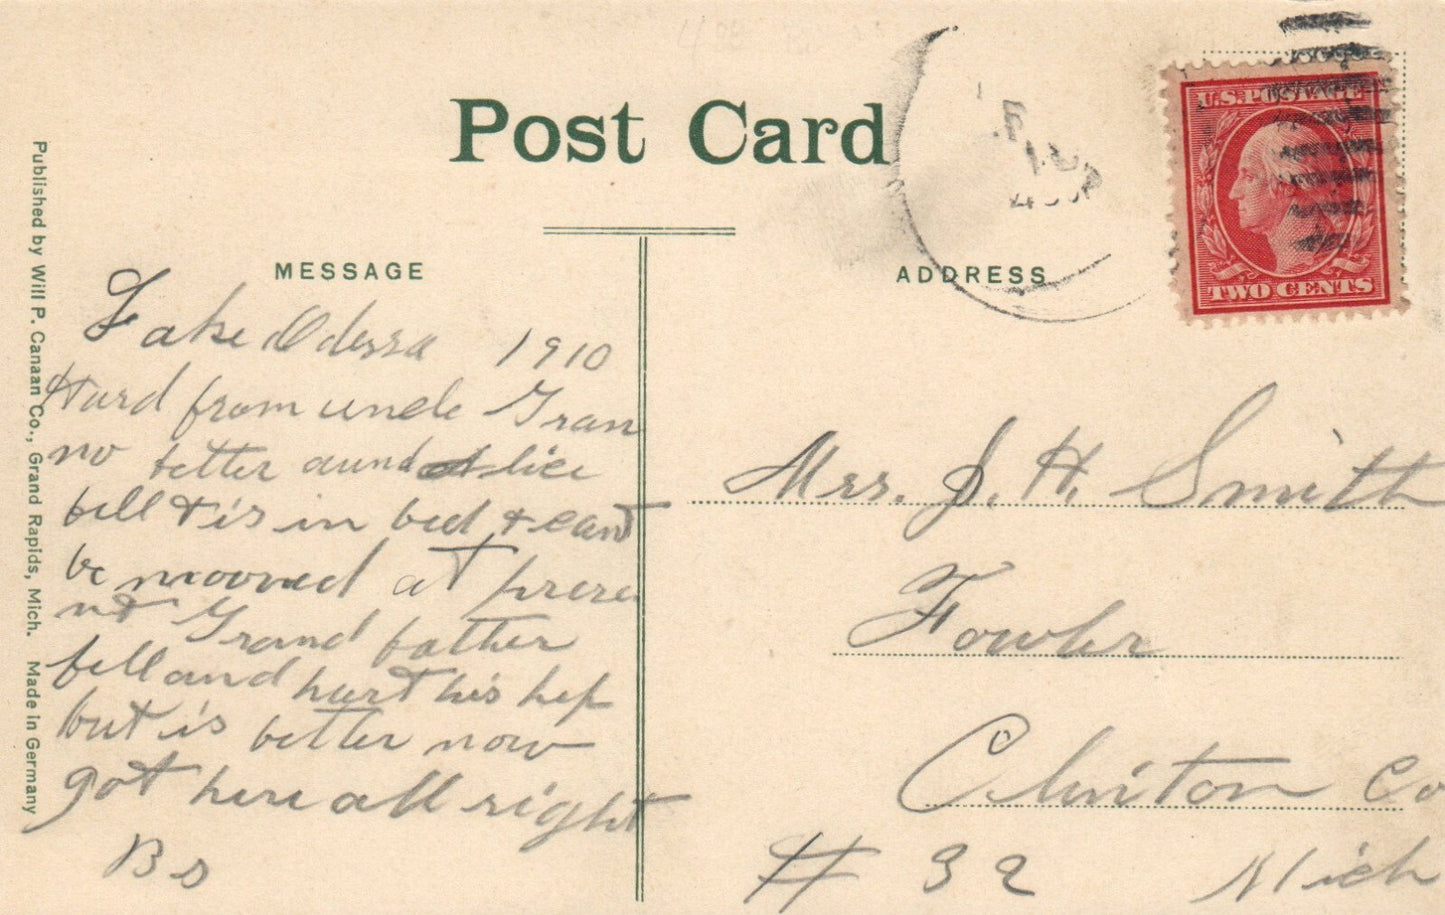 Post Card
Published by Will P. Canaan Co., Grand Rapids, Mich. Made in Germany
MESSAGE
Lake Odessa 1910
Hurd from uncle Gran
no better aund alice
fell & is in bed & cant
be mooved at prese
nt Grand father
fell and hurt his hip
but is better now
got here all right
B s
ADDRESS
U.S. POSTAGE
TWO CENTS
Mrs. J. H. Smith
Fowler
Clinton Co
# 32 Mich